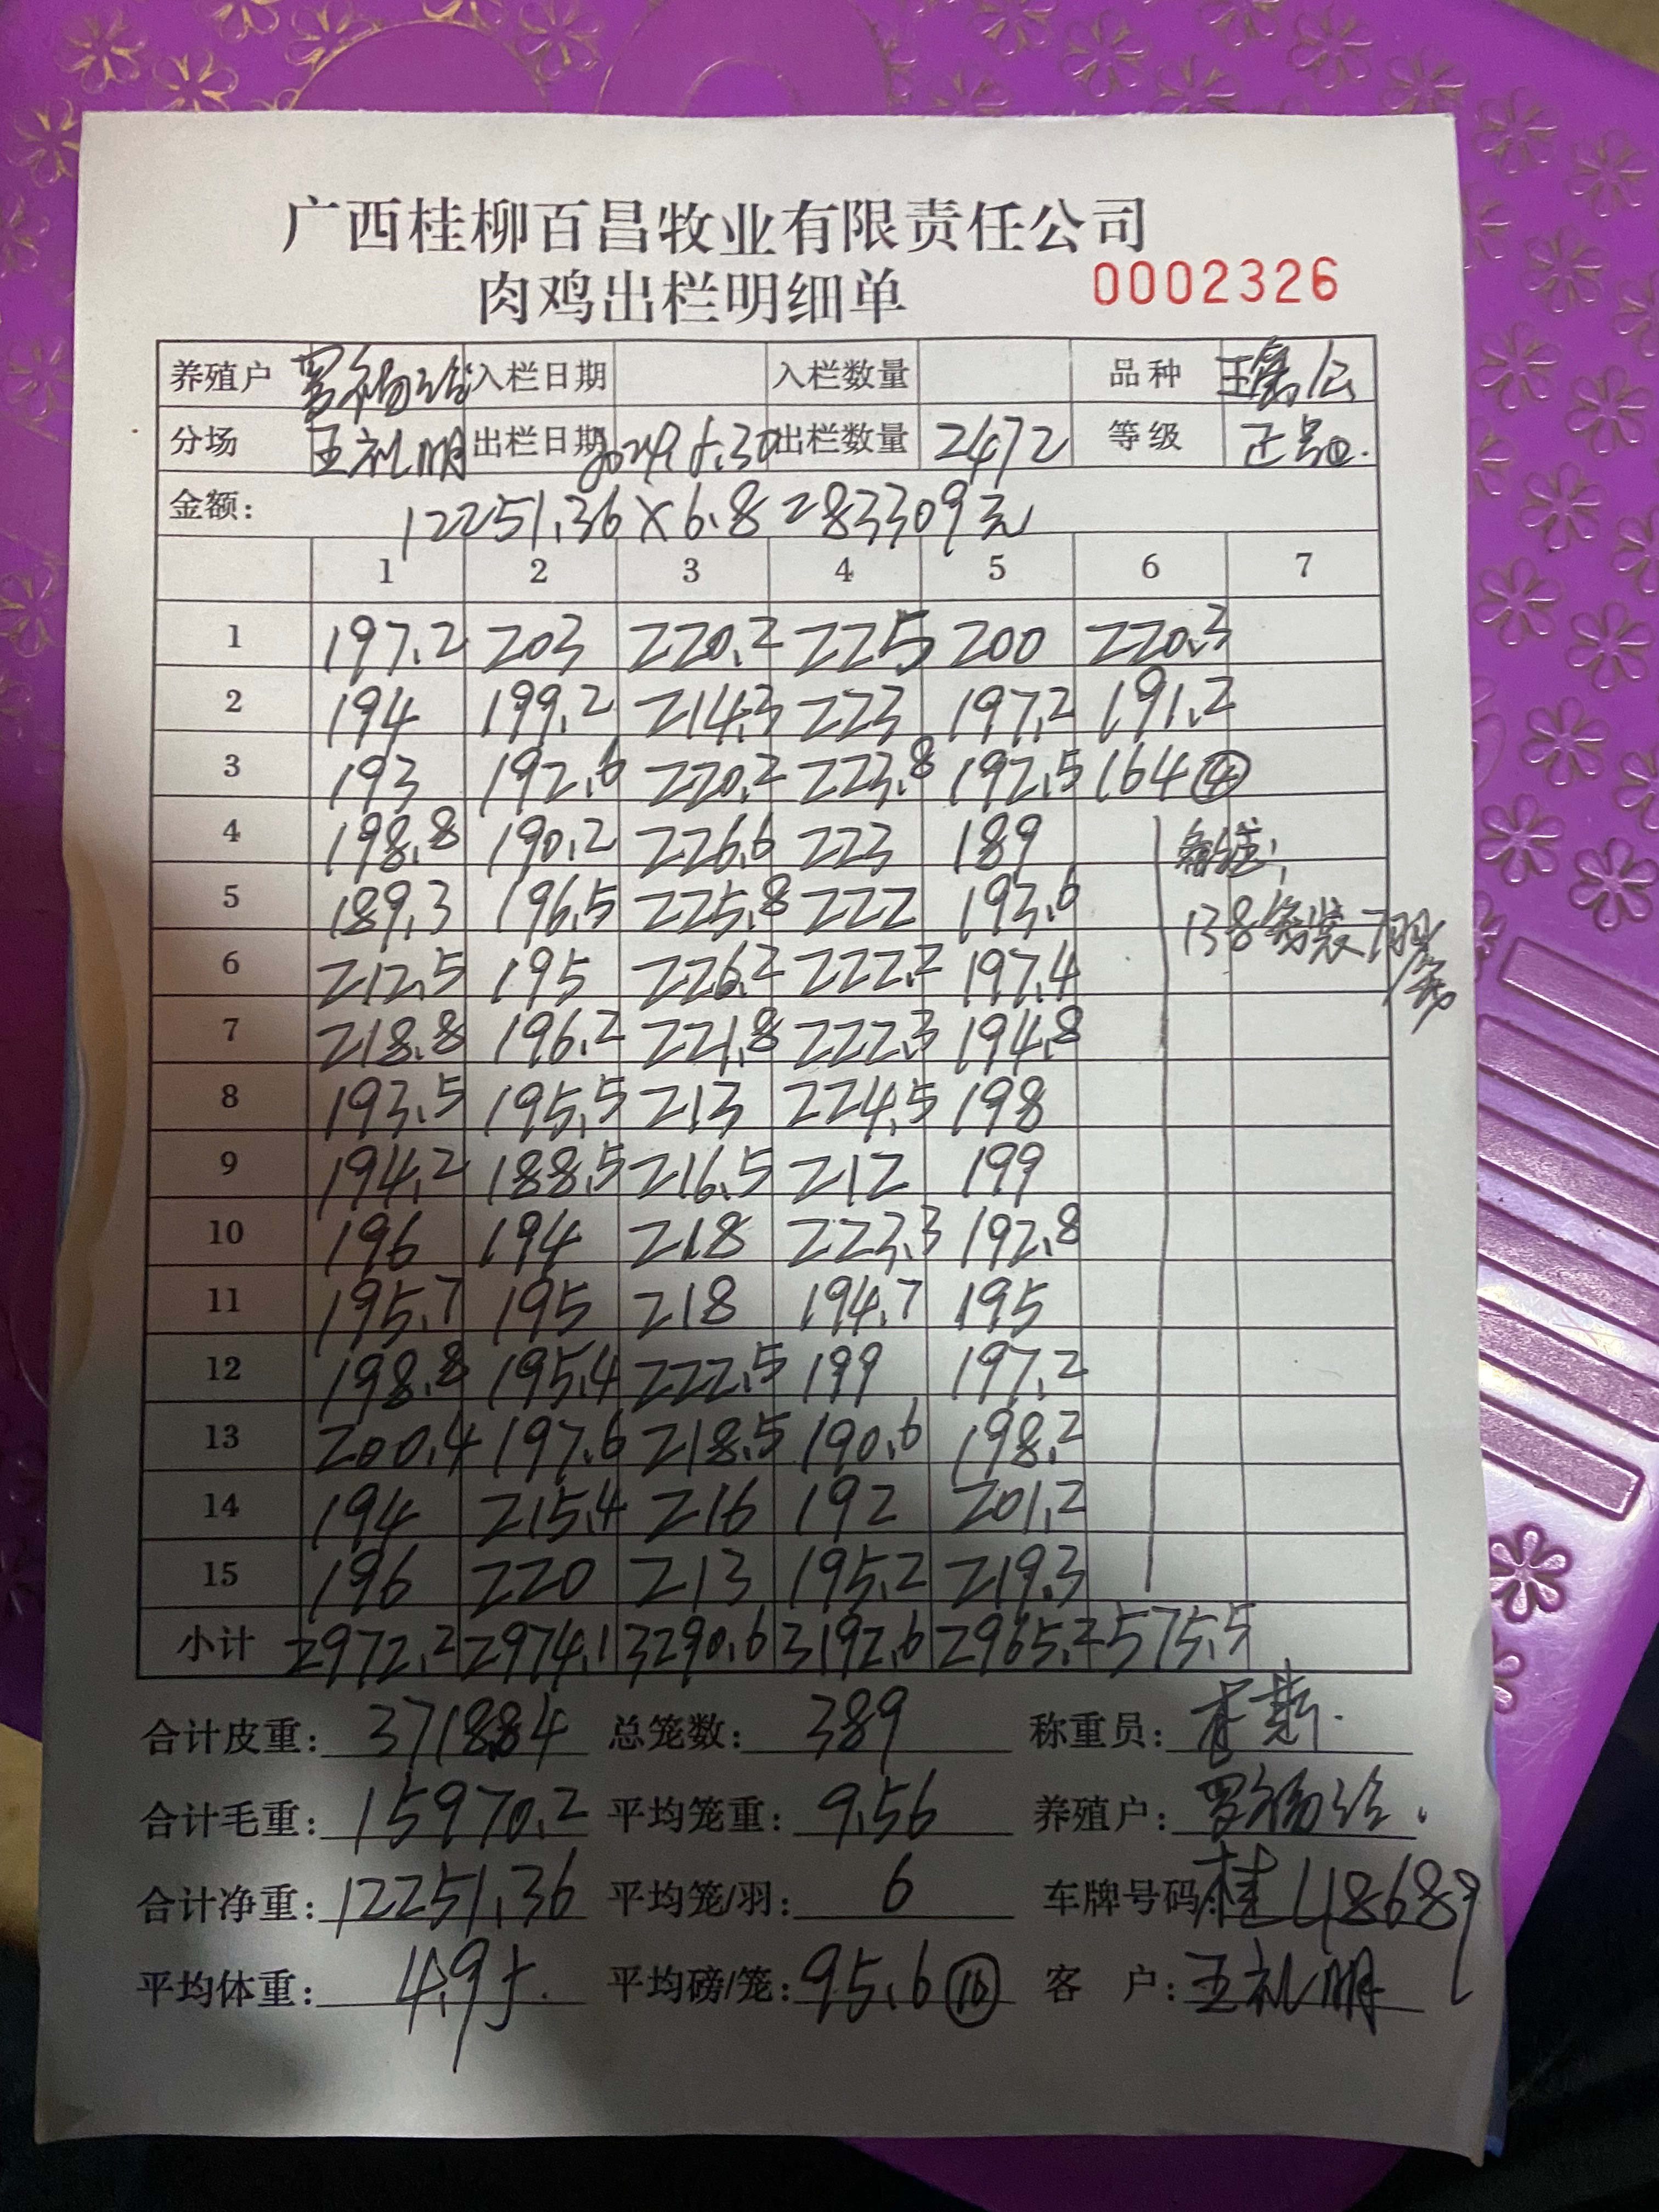 广西桂柳百昌牧业有限责任公司
肉鸡出栏明细单 0002326
养殖户 入栏日期 入栏数量 品种
分场 王礼明 出栏日期 出栏数量 2472 等级 正号
金额: 12251.36×6.8=83309元
1 2 3 4 5 6 7
1 197.2 203 220.2 225 200 220.3
2 194 199.2 214.3 223 197.2 191.2
3 193 192.6 220.2 223.8 192.5 164④
4 198.8 190.2 226.6 223 189 备注:
5 189.3 196.5 225.8 222 193.6 138
6 212.5 195 226.2 222.2 197.4
7 218.8 196.2 221.8 222.3 194.8
8 193.5 195.5 213 224.5 198
9 194.2 188.5 216.5 212 199
10 196 194 218 223.3 192.8
11 195.7 195 218 194.7 195
12 198.8 195.4 222.5 199 197.2
13 200.4 197.6 218.5 190.6 198.2
14 194 215.4 216 192 201.2
15 196 220 213 195.2 219.3
小计 2972.2 2974.1 3290.6 3192.6 2965.2 575.5
合计皮重: 3718.84 总笼数: 389 称重员:
合计毛重: 15970.2 平均笼重: 9.56 养殖户:
合计净重: 12251.36 平均笼/羽: 6 车牌号码: 桂L48689
平均体重: 4.95 平均磅/笼: 95.6⑩ 客 户: 王礼明